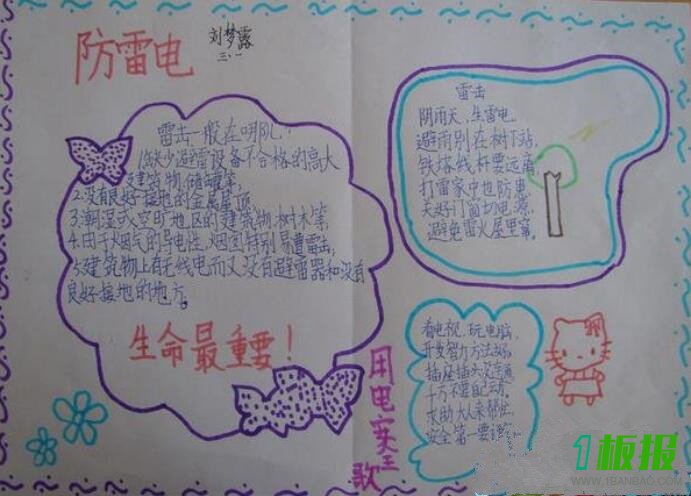 防雷电
刘梦露
三、一
雷击一般在哪儿?
1.缺少避雷设备不合格的高大
建筑物、储罐等
2.没有良好接地的金属屋顶
3.潮湿或空旷地区的建筑物、树木等
4.由于烟气的导电性,烟囱特别易遭雷击
5.建筑物上有无线电而又没有避雷器和没有
良好接地的地方。
生命最重要!
雷击
阴雨天,生雷电,
避雨别在树下站,
铁塔线杆要远离,
打雷家中也防患,
关好门窗切电源,
避免雷火屋里窜。
用电安全歌
看电视,玩电脑,
开发智力方法好。
插座插头没弄通
千万不要自己动。
求助大人来帮忙
安全第一要
1板报
WWW.1BANBAO.COM